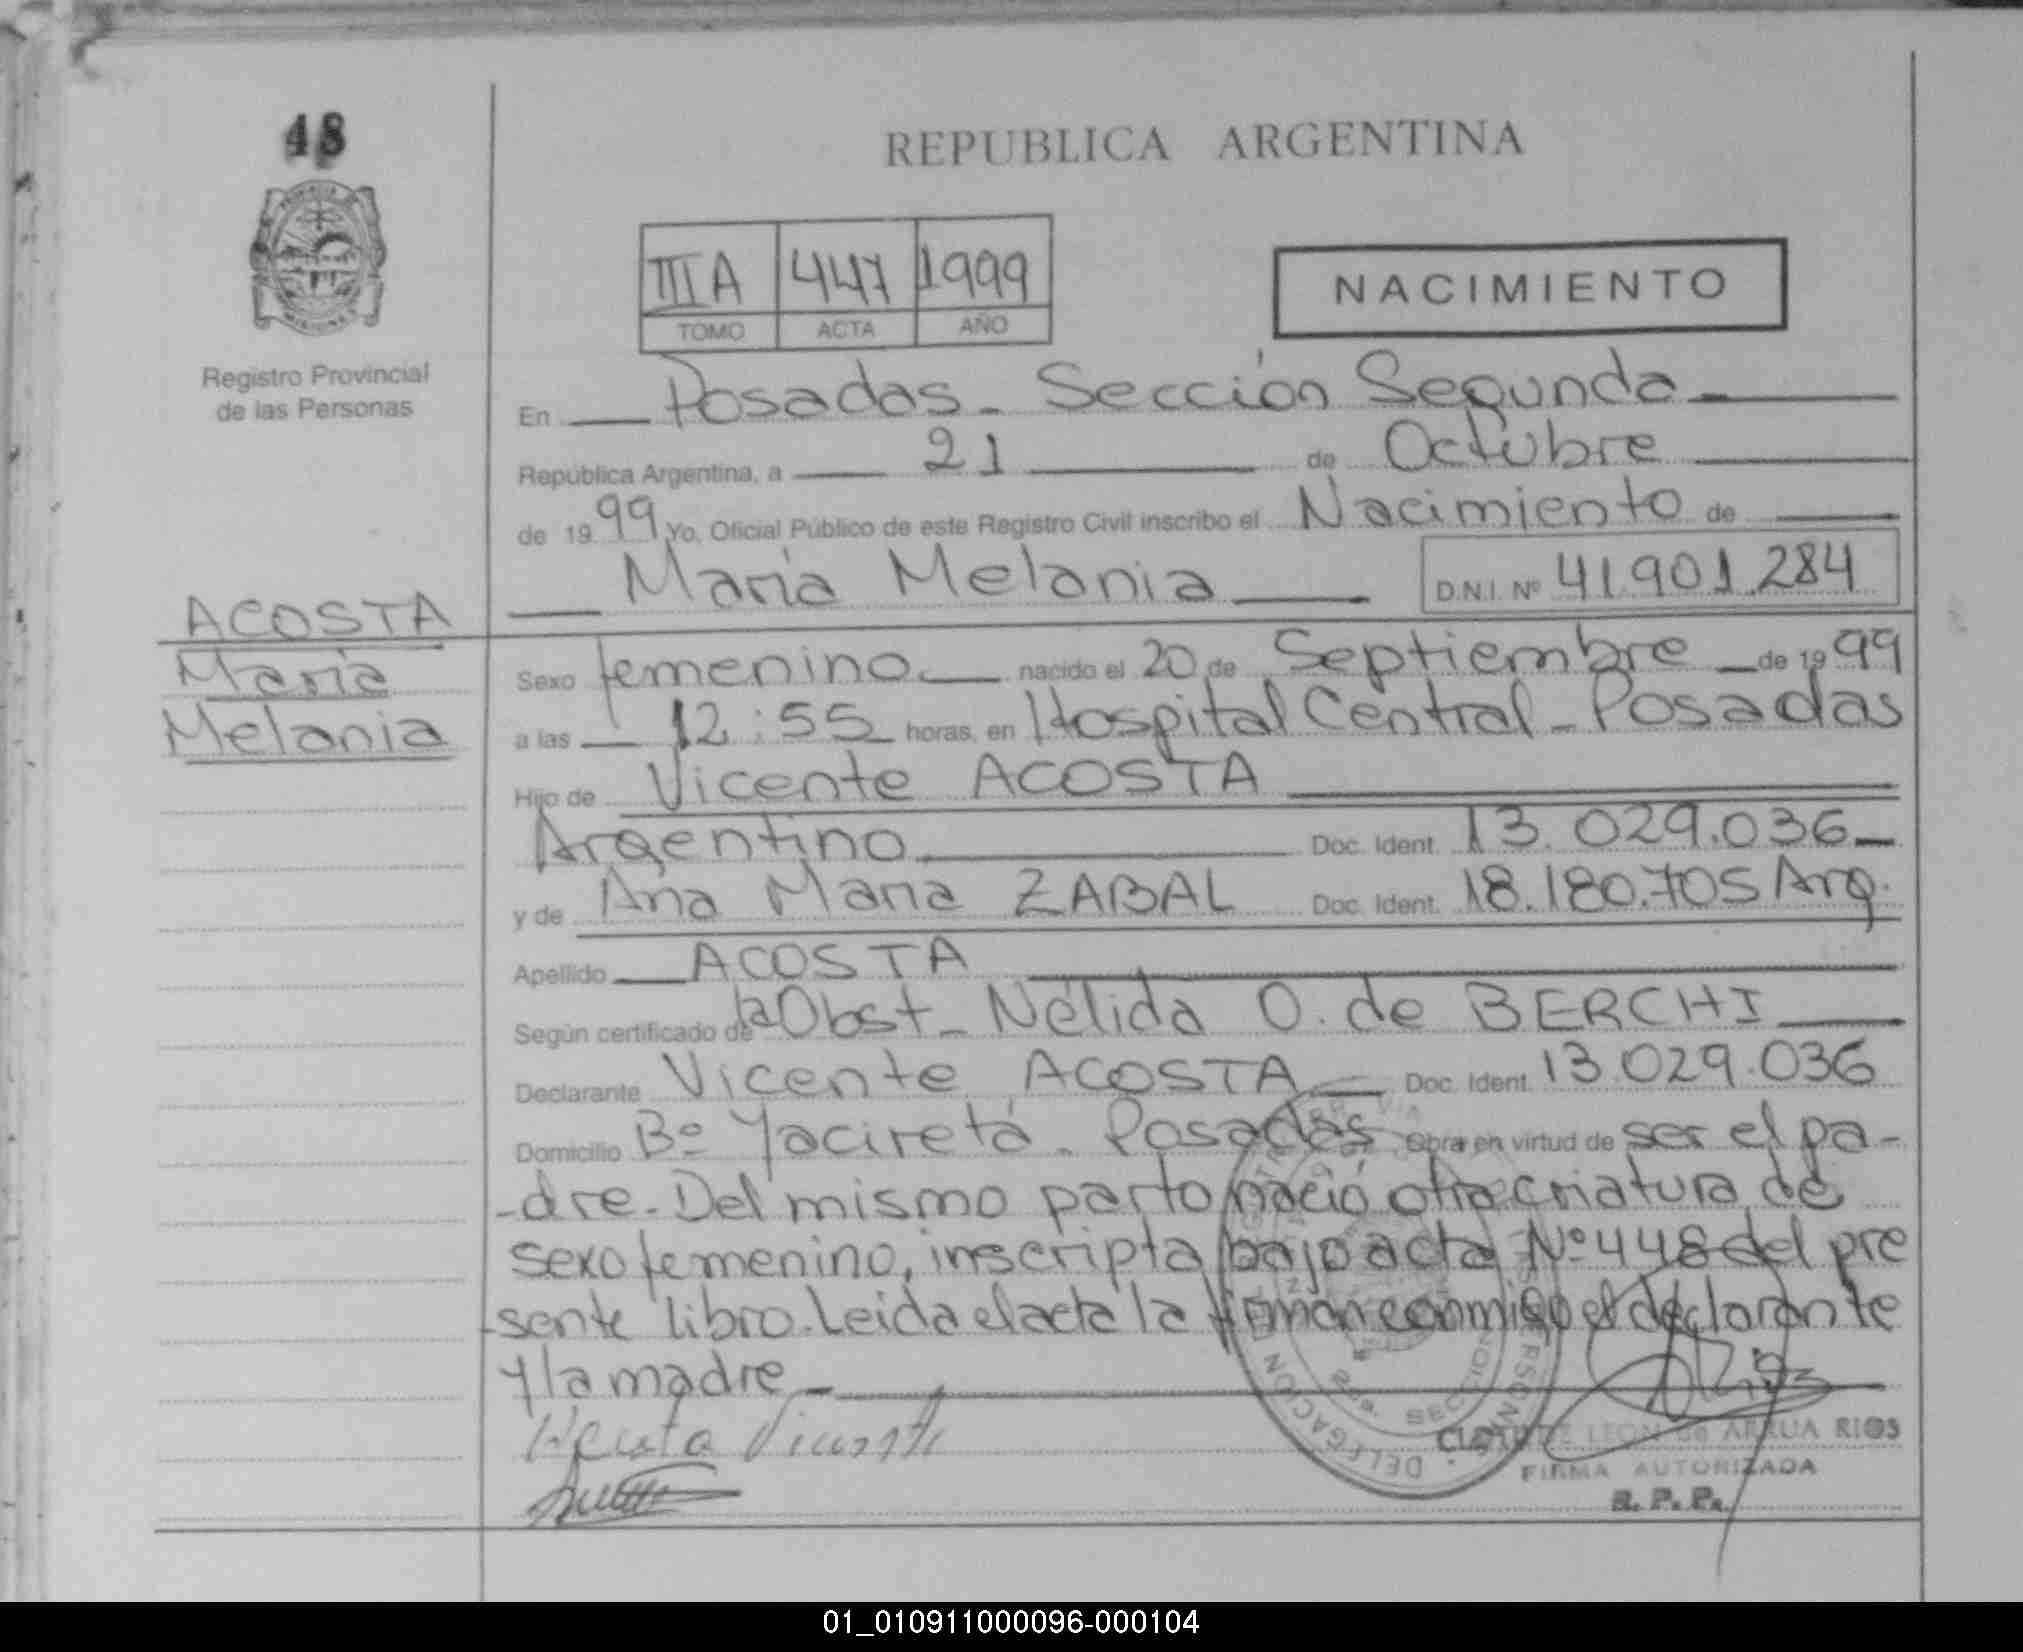 48
REPUBLICA ARGENTINA
IIIA 447 1999
TOMO ACTA AÑO
NACIMIENTO
Registro Provincial
de las Personas
En Posadas - Sección Segunda
República Argentina, a 21 de Octubre
de 1999 Yo, Oficial Público de este Registro Civil inscribo el Nacimiento de
María Melania D.N.I. Nº 41.901.284
ACOSTA
María
Melania
Sexo femenino nacido el 20 de Septiembre de 1999
a las 12:55 horas, en Hospital Central - Posadas
Hijo de Vicente ACOSTA
Argentino Doc. Ident. 13.029.036
y de Ana María ZABAL Doc. Ident. 18.180.705 Arg.
Apellido ACOSTA
Según certificado de la Obst - Nélida O. de BERCHI
Declarante Vicente ACOSTA Doc. Ident. 13.029.036
Domicilio Bº Yaciretá - Posadas Obra en virtud de ser el pa-
-dre - Del mismo parto nació otra criatura de
sexo femenino, inscripta bajo acta Nº 448 del pre
sente libro. Leída el acta la firman conmigo el declarante
y la madre -
Vicente
DELEGACION
SECCION
LEON de ARRUA RIOS
FIRMA AUTORIZADA
R. P. Ps.
01_010911000096-000104